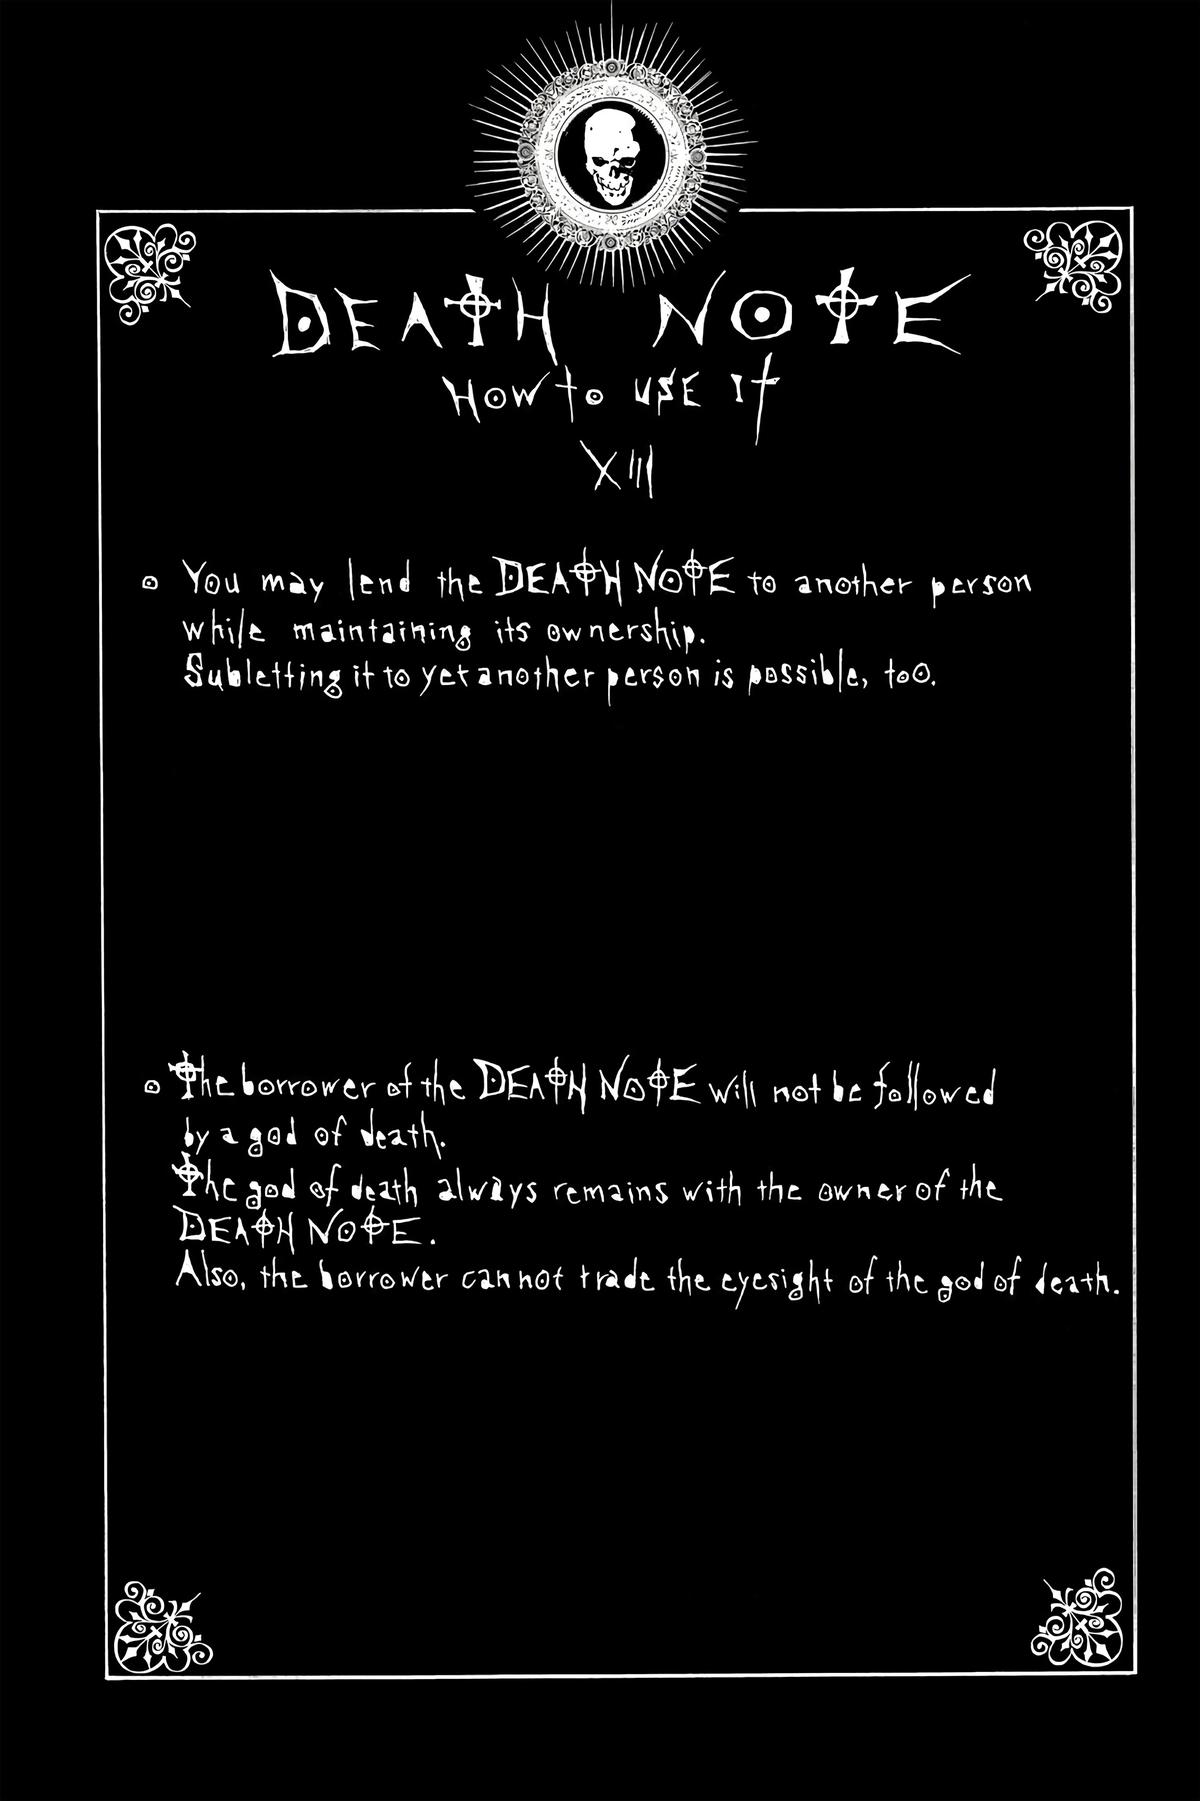 DEATH NOTE
HOW to USE It
XIII
You may lend the DEATH NOTE to another person
while maintaining its ownership.
Subletting it to yet another person is possible, too.
The borrower of the DEATH NOTE will not be followed
by a god of death.
The god of death always remains with the owner of the
DEATH NOTE.
Also, the borrower cannot trade the eyesight of the god of death.